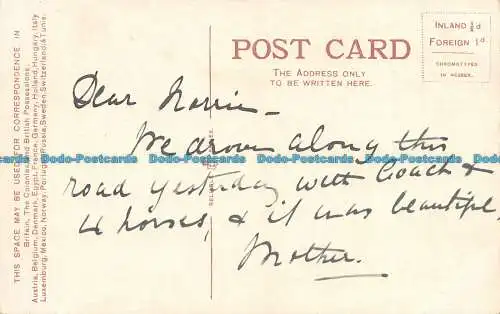 POST CARD
THE ADDRESS ONLY
TO BE WRITTEN HERE.
INLAND ½d
FOREIGN 1d.
CHROMOTYPED
IN
THIS SPACE MAY BE USED FOR CORRESPONDENCE IN
Britain, The Colonies and British Possessions;
Austria, Belgium, Denmark, Egypt, France, Germany, Holland, Hungary, Italy
Luxemburg, Mexico, Norway, Portugal, Russia, Sweden, Switzerland & Tunis.
Dear Norrie -
We drove along this
road yesterday with Coach &
4 horses, & it was beautiful.
Mother.
Dodo-Postcards Dodo-Postcards Dodo-Postcards Dodo-Postcards Dodo-Postcards
Dodo-Postcards Dodo-Postcards Dodo-Postcards Dodo-Postcards Dodo-Postcards